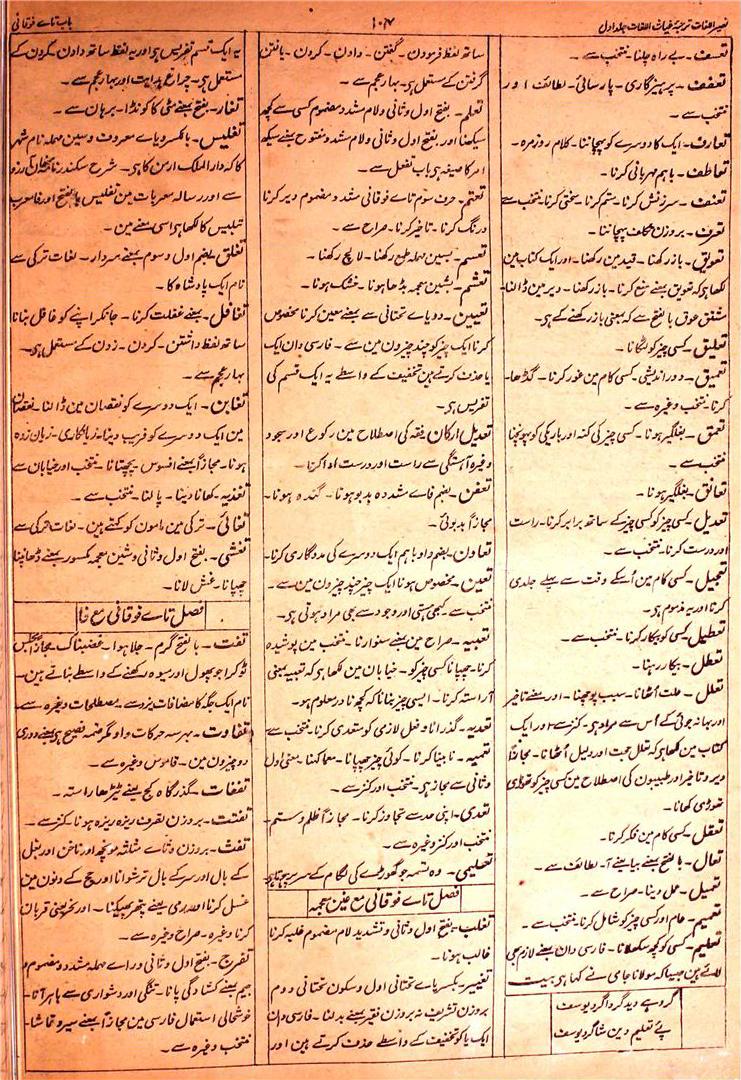 نصیر اللغات ترجمۂ غیاث اللغات جلد اول
۱۰۷
باب تاے فوقانی
تعسف۔ بے راہ چلنا۔ منتخب سے۔
تعفف۔ پرہیزگاری۔ پارسائی۔ لطائف اور
منتخب سے۔
تعارف۔ ایک کا دوسرے کو پہچاننا۔ کلام روزمرہ۔
تعاطف۔ باہم مہربانی کرنا۔
تعنف۔ سرزنش کرنا۔ ستم کرنا۔ سختی کرنا۔ منتخب سے
تعرف۔ بروزن تکلف پہچاننا۔
تعویق۔ باز رکھنا۔ قید مین رکھنا۔ اور ایک کتاب مین
لکھا ہی کہ تعویق بمعنے منع کرنا۔ باز رکھنا۔ دیر مین ڈالنا۔
مشتق عوق بالفتح سے کہ بمعنی باز رکھنے کے ہی۔
تعلیق۔ کسی چیز کو لٹکانا۔
تعمیق۔ دور اندیشی۔ کسی کام مین غور کرنا۔ گڈھا
کرنا۔ منتخب وغیرہ سے۔
تعمق۔ بغلگیر ہونا۔ کسی چیز کی کنہ اور باریکی کو پہونچنا
منتخب سے۔
تعانق۔ بغلگیر ہونا۔
تعدیل۔ کسی چیز کو کسی چیز کے ساتھ برابر کرنا۔ راست
اور درست کرنا۔ منتخب سے۔
تعجیل۔ کسی کام مین اُسکے وقت سے پہلے جلدی
کرنا اور یہ مذموم ہی۔
تعطیل۔ کسی کو بیکار کرنا۔ منتخب سے۔
تعطل۔ بیکار رہنا۔
تعلل۔ علت اُٹھانا۔ سبب پوچھنا۔ اور بمعنے تاخیر
اور بہانہ جوئی کے اُس سے مراد ہی۔ کنز سے اور ایک
کتاب مین لکھا ہی کہ تعلل حجت اور دلیل اُٹھانا۔ مجازاً
دیر و تاخیر اور طبیبون کی اصطلاح مین کسی چیز کو تھوڑی
تھوڑی کھانا۔
تعقل۔ کسی کام مین فکر کرنا۔
تعال۔ بالفتح بمعنے بیا یعنے آ۔ لطائف سے۔
تعمیل۔ عمل دینا۔ صراح سے۔
تعمیم۔ عام اور کسی چیز کو شامل کرنا۔ منتخب سے۔
تعلیم۔ کسی کو کچھ سکھلانا۔ فارسی دان بمعنے لازم بھی
لاتے ہین جیسا کہ مولانا جامی نے کہا ہی بیت
گروہے دید گرداگرد یوسف
پئے تعلیم دین شاگرد یوسف
ساتھ لفظ فرمودن۔ گفتن۔ دادن۔ کردن۔ یافتن
گرفتن کے مستعمل ہی۔ بہار عجم سے۔
تعلم۔ بفتح اول و ثانی و لام مشدد مضموم کسی سے کچھ
سیکھنا اور بفتح اول و ثانی و لام مشدد مفتوح بمعنے سیکھ
امر کا صیغہ ہی باب تفعل سے۔
تعتم۔ حرف سوم تاے فوقانی مشدد مضموم دیر کرنا
درنگ کرنا۔ تاخیر کرنا۔ صراح سے۔
تعسم۔ بسین مہملہ طمع رکھنا۔ لالچ رکھنا۔
تعشم۔ بشین معجمہ بڈھا ہونا۔ خشک ہونا۔
تعیین۔ دو یاے تحتانی سے بمعنے معین کرنا مخصوص
کرنا ایک چیز کو چند چیزون مین سے۔ فارسی دان ایک
یا حذف کرتے ہین تخفیف کے واسطے یہ ایک قسم کی
تفریس ہی۔
تعدیل ارکان فقہ کی اصطلاح مین رکوع اور سجود
وغیرہ آہستگی سے راست اور درست ادا کرنا۔
تعفن۔ بضم فاے مشددہ بدبو ہونا۔ گندہ ہونا۔
مجازاً بدبوئی۔
تعاون۔ بضم واو باہم ایک دوسرے کی مددگاری کرنا۔
تعین۔ مخصوص ہونا ایک چیز چند چیزون مین سے۔
منتخب سے۔ کبھی ہستی اور وجود سے بھی مراد ہوتی ہی۔
تعبیہ۔ صراح مین بمعنے سنوارنا۔ منتخب مین پوشیدہ
کرنا۔ چھپانا کسی چیز کو۔ خیابان مین لکھا ہی کہ تعبیہ بمعنی
آراستہ کرنا۔ ایسی چیز بنانا کہ کچھ نادر معلوم ہو۔
تعدیہ۔ گذرانا و فعل لازمی کو متعدی کرنا۔ منتخب سے
تعمیہ۔ نابینا کرنا۔ کوئی چیز چھپانا۔ معما کہنا۔ بمعنی اول
و ثانی سے مجاز ہی۔ منتخب اور کنز سے۔
تعدی۔ اپنی حد سے تجاوز کرنا۔ مجازاً ظلم و ستم۔
منتخب اور کنز وغیرہ سے۔
تعلیمی۔ وہ تسمہ جو گھوڑے کی لگام کے سرے پر ہوتا ہی
فصل تاے فوقانی مع غین معجمہ
تغلب۔ بفتح اول و ثانی و تشدید لام مضموم غلبہ کرنا
غالب ہونا۔
تغییر۔ بکسر یاے تحتانی اول و سکون تحتانی دوم
بروزن تشریف نہ بروزن فقیر بمعنے بدلنا۔ فارسی دان
ایک یا کو تخفیف کے واسطے حذف کرتے ہین اور
یہ ایک قسم تفریس ہی اور یہ لفظ ساتھ دادن۔ کردن کے
مستعمل ہی۔ چراغ ہدایت اور بہار عجم سے۔
تغار۔ بفتح بمعنے مٹی کا کونڈا۔ برہان سے۔
تفلیس۔ بالکسر و یاے معروف و سین مہملہ نام شہر
کا کہ دار الملک ارمن کا ہی۔ شرح سکندر نامہ خان آرزو
سے اور رسالہ معربات مین تفلیس بالفتح اور فا معرب
تبلیس کا لکھا ہی اسی معنے مین۔
تغلق۔ بضم اول و سوم بمعنے سردار۔ لغات ترکی سے
نام ایک پادشاہ کا۔
تغافل۔ بمعنے غفلت کرنا۔ جانکر اپنے کو غافل بنانا
ساتھ لفظ داشتن۔ کردن۔ زدن کے مستعمل ہی۔
بہار عجم سے۔
تغابن۔ ایک دوسرے کو نقصان مین ڈالنا۔ نقصان
مین ایک دوسرے کو فریب دینا۔ زیانکاری۔ زیان زدہ
ہونا۔ مجازاً بمعنے افسوس۔ پچھتانا۔ منتخب اور خیابان سے
تغذیہ۔ کھانا دینا۔ پالنا۔ منتخب سے۔
تغائی۔ ترکی مین مامون کو کہتے ہین۔ لغات ترکی سے
تغشی۔ بفتح اول و ثانی و شین معجمہ مکسور بمعنے ڈھانپنا
چھپانا۔ غش لانا۔
فصل تاے فوقانی مع فا
تفت۔ بالفتح گرم۔ جلا ہوا۔ غضبناک۔ مجازاً
ٹوکرا جو پھول اور میوہ رکھنے کے واسطے بناتے ہین۔
نام ایک جگہ کا مضافات یزد سے۔ مصطلحات وغیرہ سے۔
تفاوت۔ بہر سہ حرکات واو مگر ضمہ فصیح ہی بمعنے دوری
دو چیزون مین۔ قاموس وغیرہ سے۔
تفغات۔ گذرگاہ کج یعنے ٹیڑھا راستہ۔
تفتت۔ بروزن تصرف ریزہ ریزہ ہونا۔ کنز سے۔
تفث۔ بروزن و ثاے مثلثہ مونچھ اور ناخن اور بغل
کے بال اور سر کے بال ترشوانا اور حج کے دنون مین
غسل کرنا اور رمی یعنے پتھر پھینکنا۔ اور نحر یعنی قربان
کرنا وغیرہ۔ صراح وغیرہ سے۔
تفرج۔ بفتح اول و ثانی و راے مہملہ مشدد مضموم و
جیم بمعنے کشادگی پانا۔ تنگی اور دشواری سے باہر آنا۔
خوشحالی استعمال فارسی مین مجازاً بمعنے سیر و تماشا۔
منتخب وغیرہ سے۔